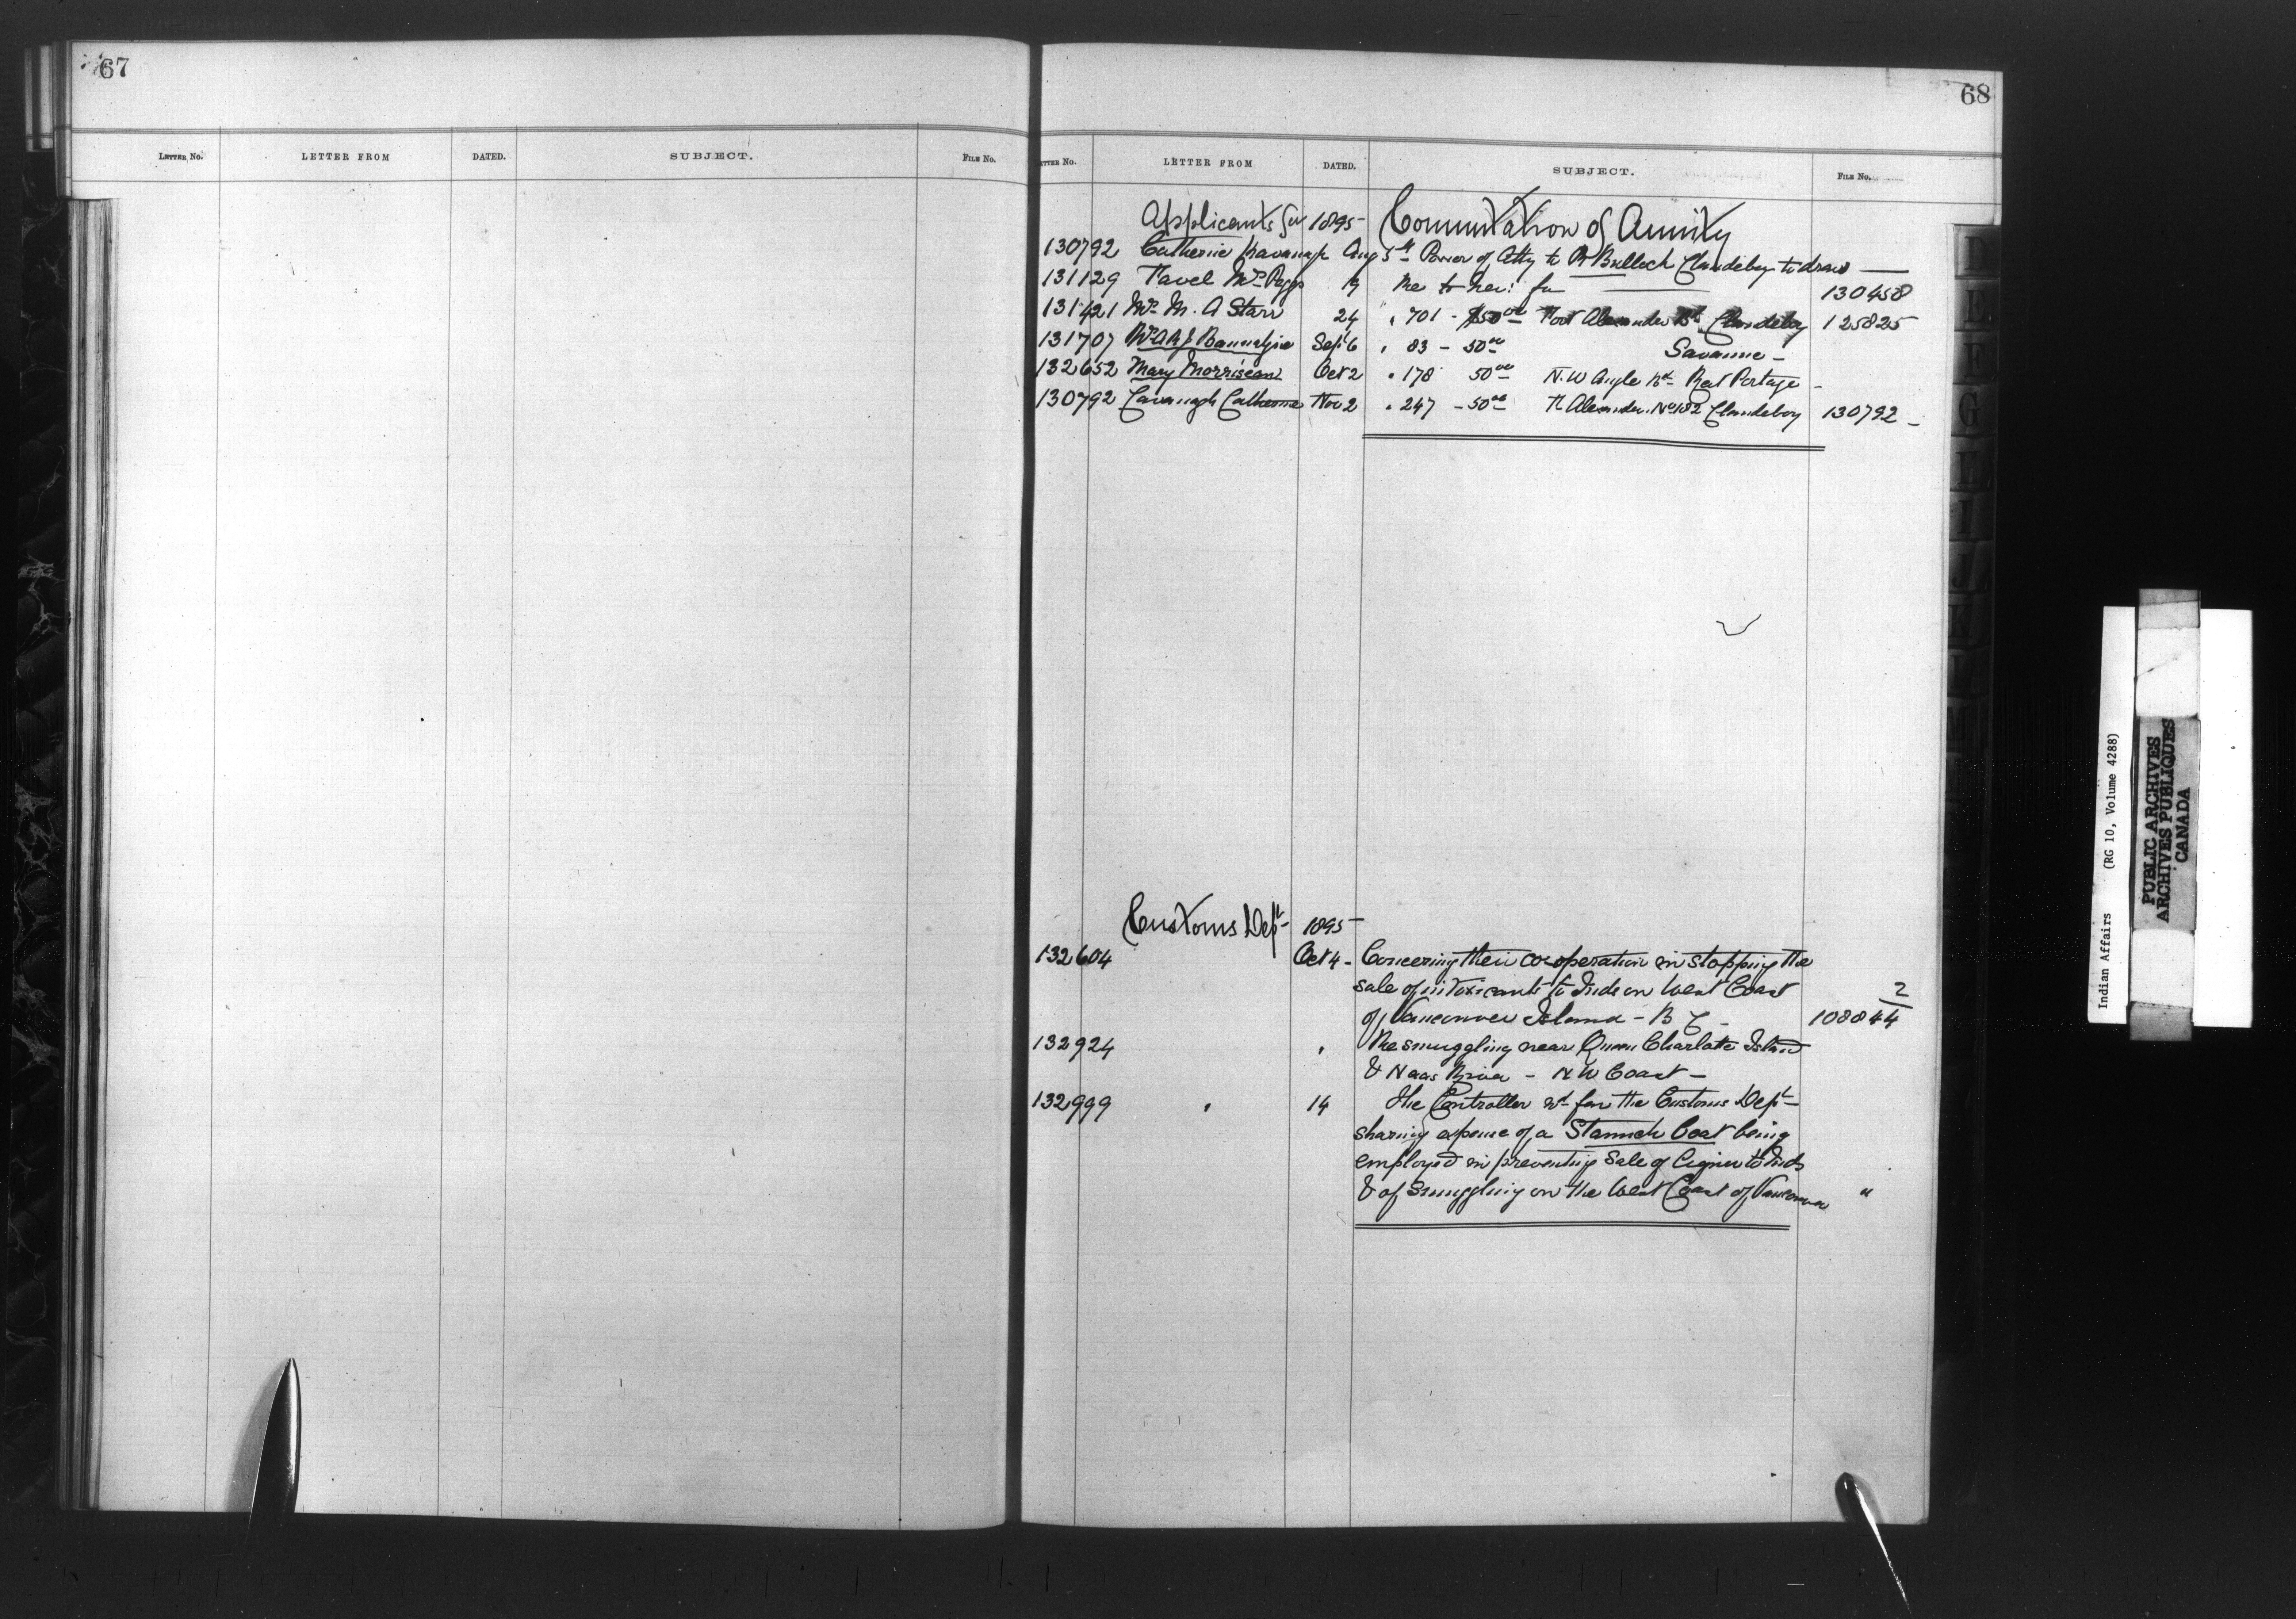 67
LETTER No. LETTER FROM DATED. SUBJECT. FILE No.
68
ETTER No. LETTER FROM DATED. SUBJECT. FILE No.
Applicants for 1895 - Commutation of Annuity
130792 Catherine Kavanagh Aug 5th Power of Atty to R Bullock Clandeboy to draw —
131129 Favel Mrs Peggy 19 Re to her: for — 130458
131421 Mrs M. A Starr 24 " 701 - $50 00 Fort Alexander Bd Clandeboy 125825
131707 Sept 6 " 83 - 50 00 Savanne -
132652 Mary Morriseau Oct 2 " 178 50 00 N.W Angle Bd Rat Portage -
130792 Cavanagh Catherine Nov 2 " 247 - 50 00 Ft Alexander. No 182 Clandeboy 130792 -
Customs Dept - 1895 -
132604 Oct 4 - Concerning their co-operation in stopping the
sale of intoxicants to Inds on West Coast 2
of Vancouver Island - B C - 108844
132924 " Re smuggling near Queen Charlotte Island
& Naas River - N W Coast -
132999 " 14 The Controller for the Customs Dept -
sharing expense of a Staunch boat being
employed in preventing Sale of Liquor to Inds
& of Smuggling on the West Coast of Vancouver "
Indian Affairs (RG 10, Volume 4288)
PUBLIC ARCHIVES
ARCHIVES PUBLIQUES
CANADA